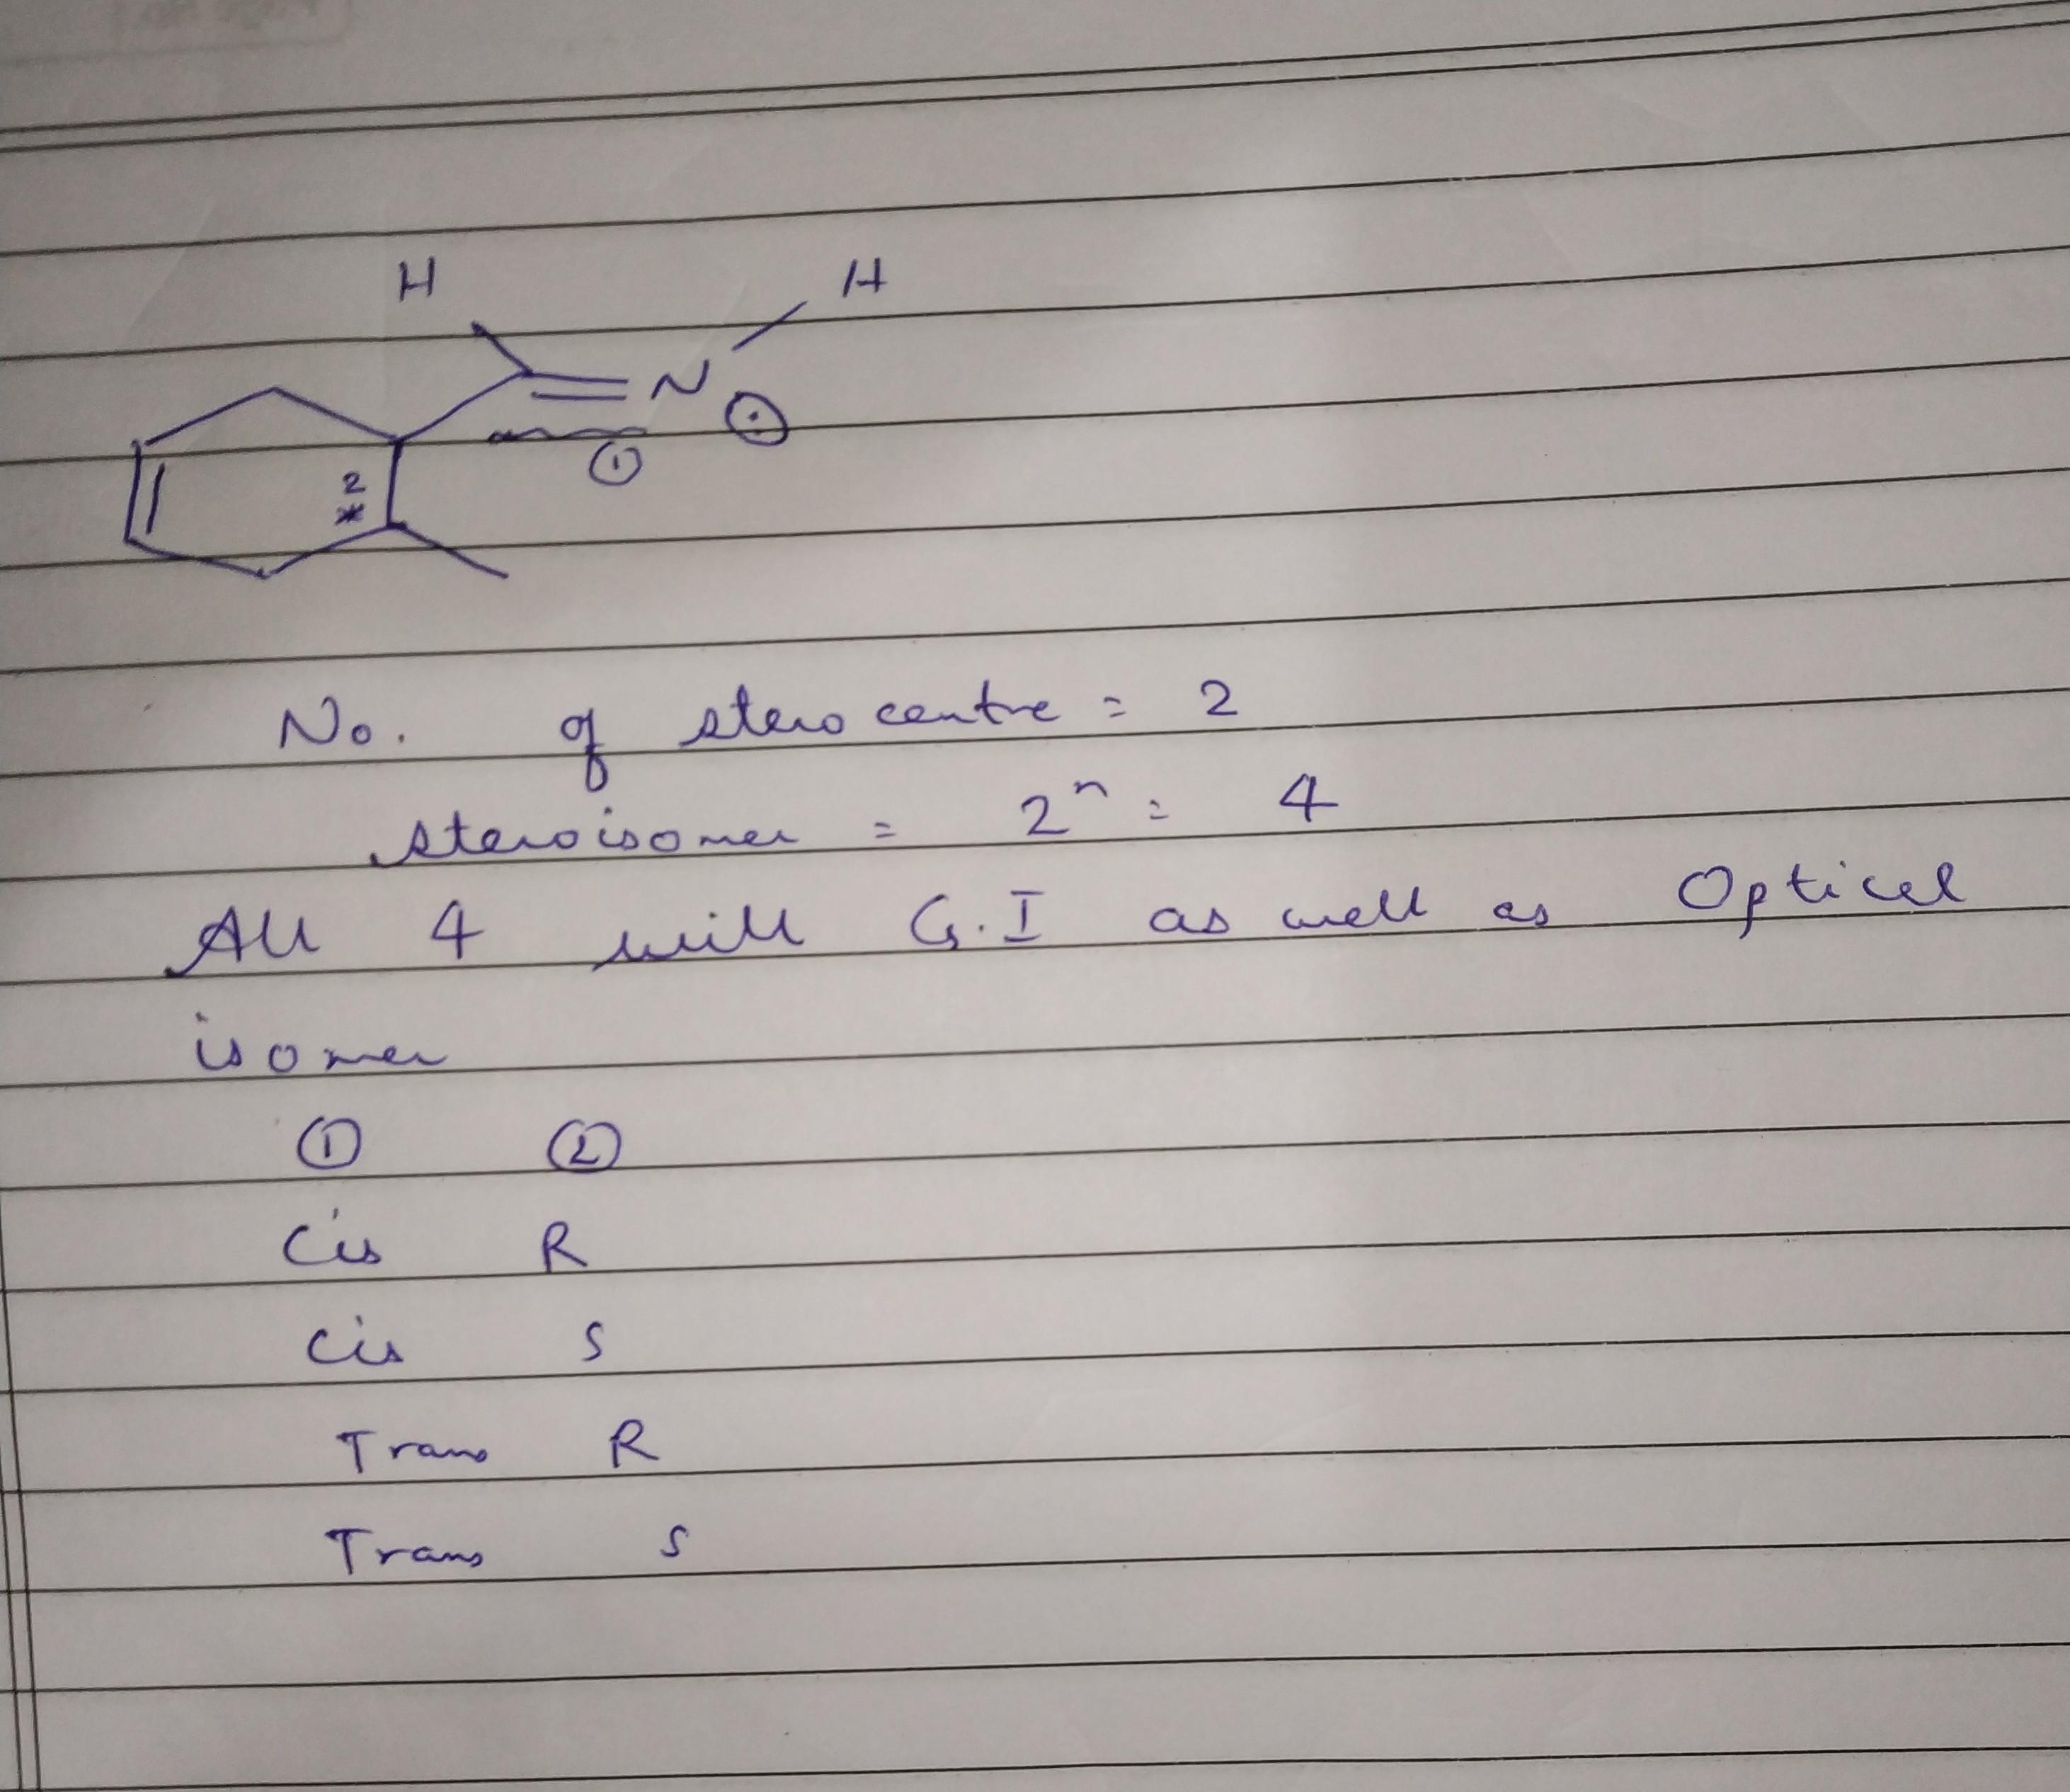 H H
N
①
2
*
No. of stero centre = 2
steroisomer = 2ⁿ = 4
All 4 will G.I as well as Optical
isomer
① ②
Cis R
cis S
Trans R
Trans S